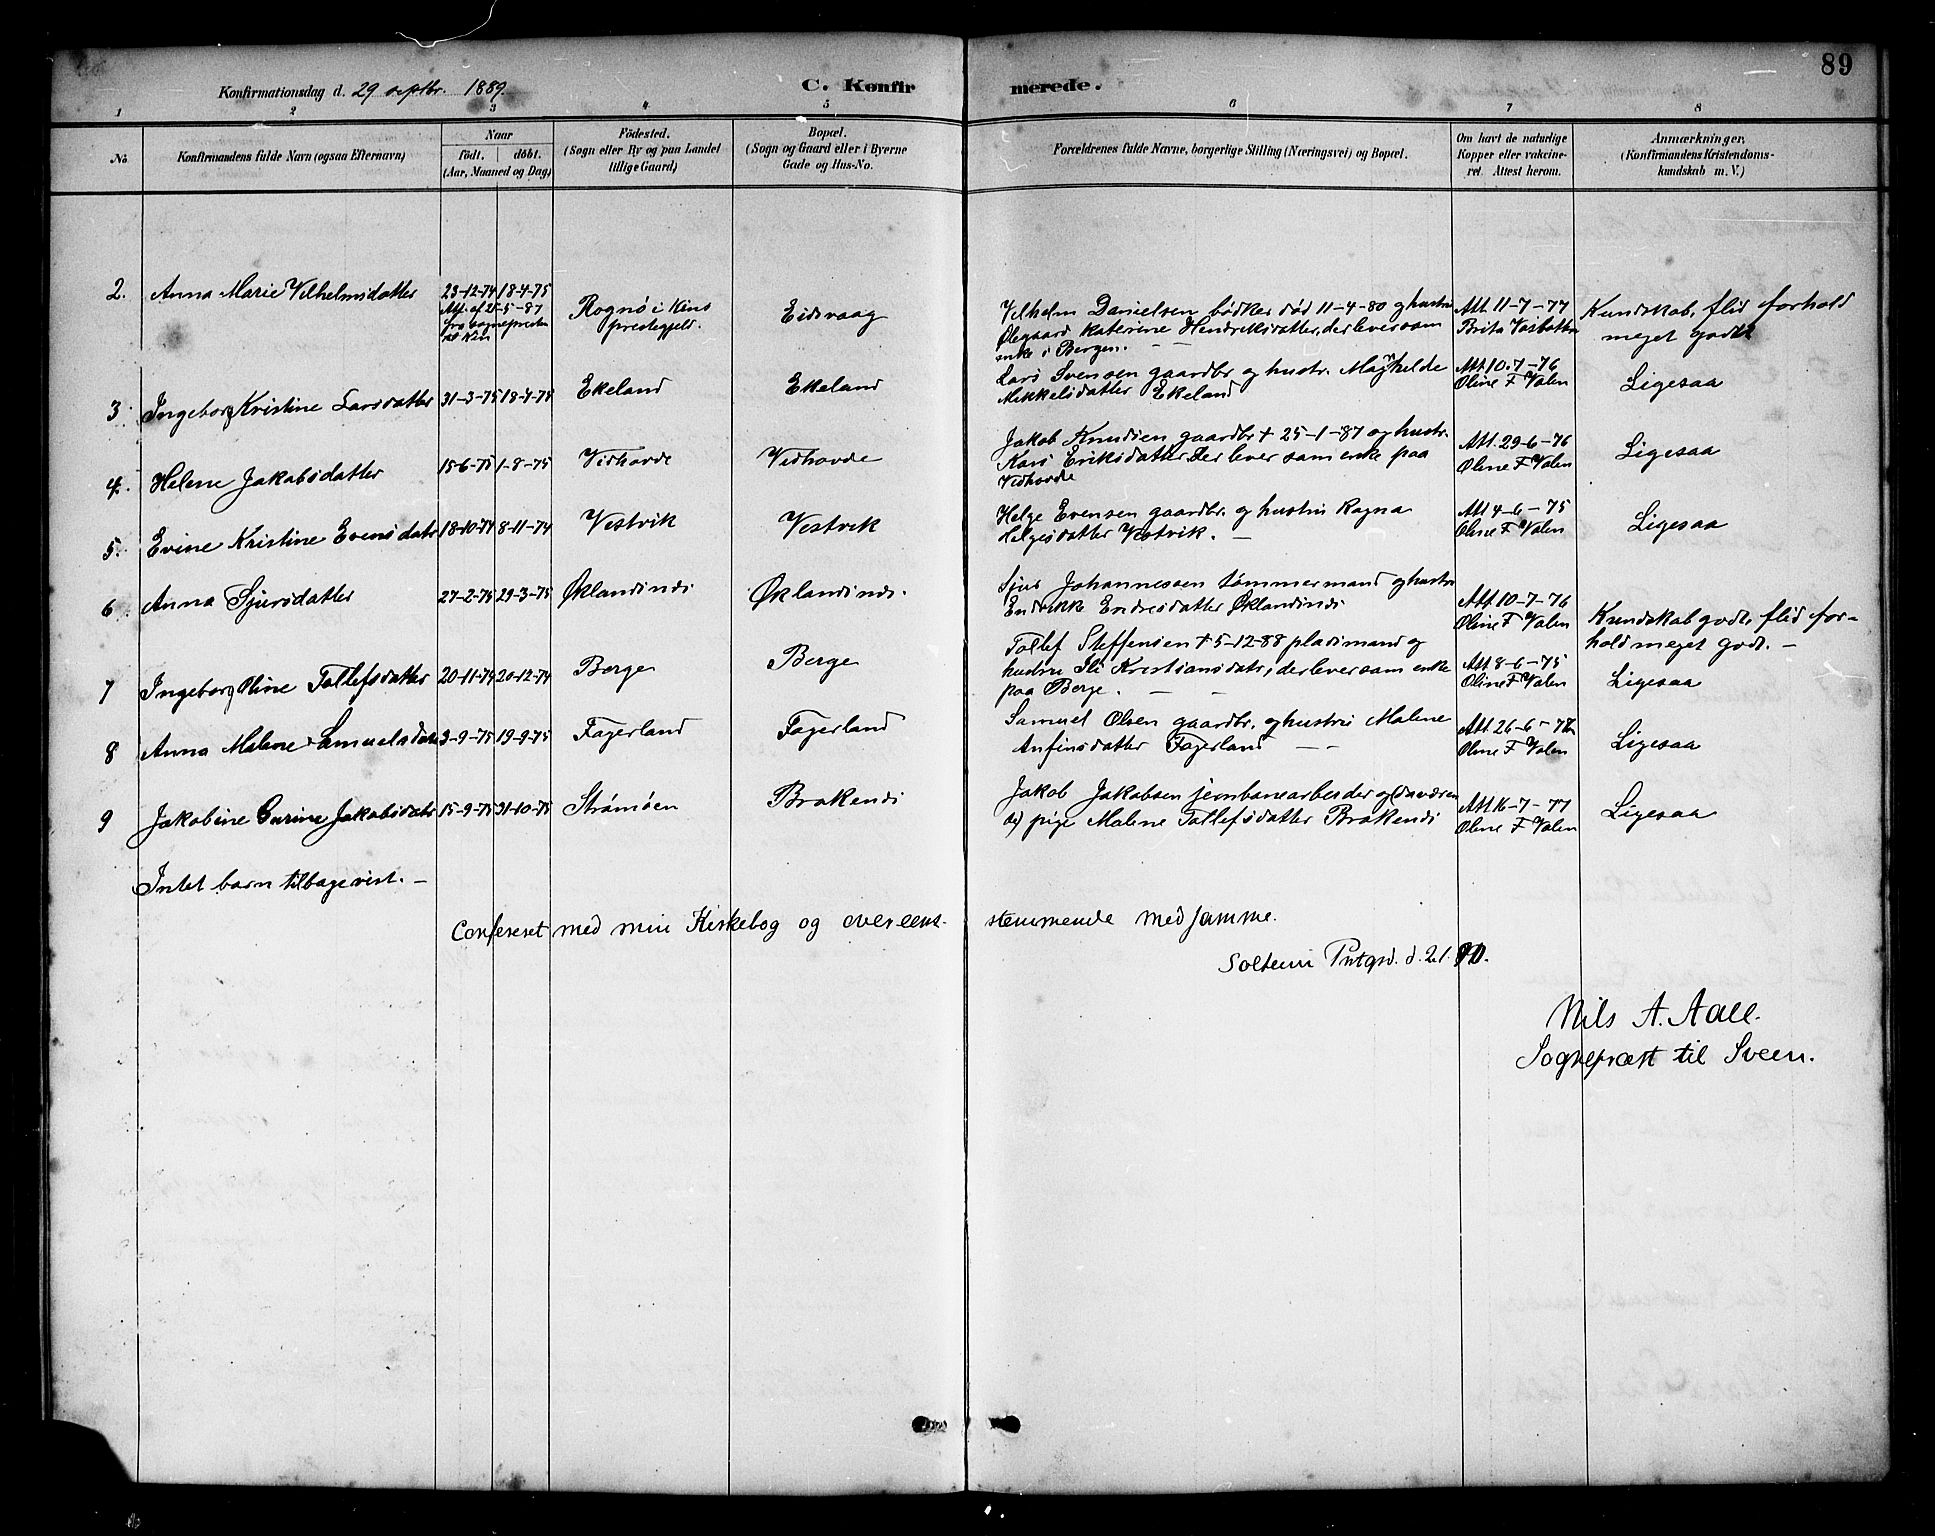 89
Konfirmationsdag d. 29 septbr. 1889.
C. Konfirmerede.
1 2 3 4 5 6 7 8
No.
Konfirmandens fulde Navn (ogsaa Efternavn)
Naar
födt. döbt.
(Aar, Maaned og Dag)
Födested.
(Sogn eller By og paa Landet
tillige Gaard)
Bopæl.
(Sogn og Gaard eller i Byerne
Gade og Hus-No.
Forældrenes fulde Navne, borgerlige Stilling (Næringsvei) og Bopæl.
Om havt de naturlige
Kopper eller vakcine-
ret. Attest herom.
Anmærkninger,
(Konfirmandens Kristendoms-
kundskab m. V.)
2. Anna Marie Vilhelmsdatter
23-12-74 18-4-75
Att. af 25-5-87
fra sognepresten
til Kin
Rognø i Kins
prestegjeld.
Eidsvaag
Vilhelm Danielsen bødker død 11-4-80 og hustru
Olegaard Katerine Hendriksdatter, der lever som
enke i Bergen. — —
Att 11-7-77
Brita
Kundskab, flid forhold
meget godt
3. Ingeborg Kristine Larsdatter
31-3-75 18-4-75
Ekeland
Ekeland
Lars Svensen gaardbr. og hustr. Magnhelde
Mikkelsdatter Ekeland
Att 10-7-76
Oline F Valen
Ligesaa
4. Helene Jakobsdatter
15-6-75 1-8-75
Vidhovde
Vidhovde
Jakob Knudsen gaardbr † 25-1-87 og hustr.
Kari Eriksdatter der lever som enke paa
Vidhovde
Att. 29-6-76
Oline F Valen
Ligesaa
5. Evine Kristine Evensdatr
18-10-74 8-11-74
Vestvik
Vestvik
Helge Evensen gaardbr. og hustru Ragna
Helgesdatter Vestvik. —
Att 4-6-75
Oline F Valen
Ligesaa
6. Anna Sjursdatter
27-2-75 29-3-75
Øklandindi
Øklandindi.
Sjur Johannessen tømmermand og hustru
Endrikke Endresdatter Øklandindi
Att 10-7-76
Oline F Valen
Kundskab godt, flid for-
hold meget godt. —
7 Ingeborg Oline Tollefsdatter
20-11-74 20-12-74
Berge
Berge
Tollef Steffensen † 5-12-88 pladsmand og
hustru Ili Kristiansdatr, der lever som enke
paa Berge. — —
Att 8-6-75
Oline F Valen
Ligesaa
8 Anna Malene Samuelsdatr
3-9-75 19-9-75
Fagerland
Fagerland
Samuel Olsen gaardbr. og hustru Malene
Anfinsdatter Fagerland — —
Att 26-6-77
Oline F Valen
Ligesaa
9 Jakobine Gurine Jakobsdatr
15-9-75 31-10-75
Strømøen
Brakendi
Jakob Jakobsen jernbanearbeider og (daværen
de) pige Malene Tollefsdatter Brakendi
Att 16-7-77
Oline F Valen
Ligesaa
Intet barn tilbagevist. —
Confereret med min Kirkebog og overeens- stemmende med samme.
Soltein Pntgrd. d. 2.1.90.
Nils A. Aall.
Sognepræst til Sveen.